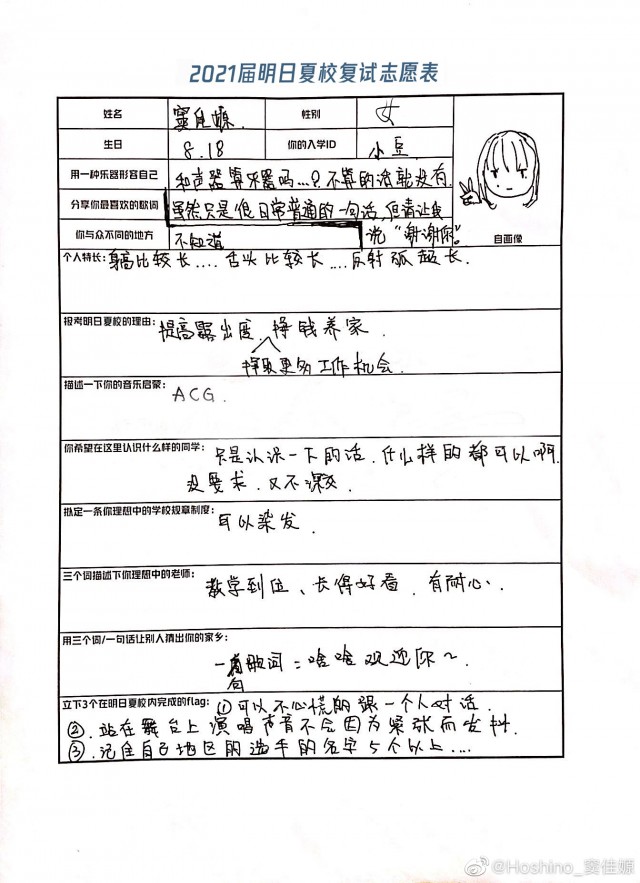 2021届明日夏校复试志愿表
姓名 窦佳嫄 性别 女
生日 8.18 你的入学ID 小豆
用一种乐器形容自己 和声器算乐器吗...?不算的话就没有.
分享你最喜欢的歌词 虽然只是很日常普通的一句话,但请让我
说“谢谢你”。
你与众不同的地方 不知道
自画像
个人特长: 身高比较长....舌头比较长....反射弧超长.
报考明日夏校的理由: 提高露出度、挣钱养家
争取更多工作机会.
描述一下你的音乐启蒙: ACG.
你希望在这里认识什么样的同学: 只是认识一下的话、什么样的都可以啊.
没要求、又不深交.
拟定一条你理想中的学校规章制度: 可以染发.
三个词描述下你理想中的老师: 教学到位、长得好看、有耐心.
用三个词/一句话让别人猜出你的家乡:
一句歌词:啥啥欢迎你~
立下3个在明日夏校内完成的flag: ①可以不心慌的跟一个人对话.
②.站在舞台上演唱声音不会因为紧张而发抖.
③.记住自己地区的选手的名字5个以上....
@Hoshino_窦佳嫄